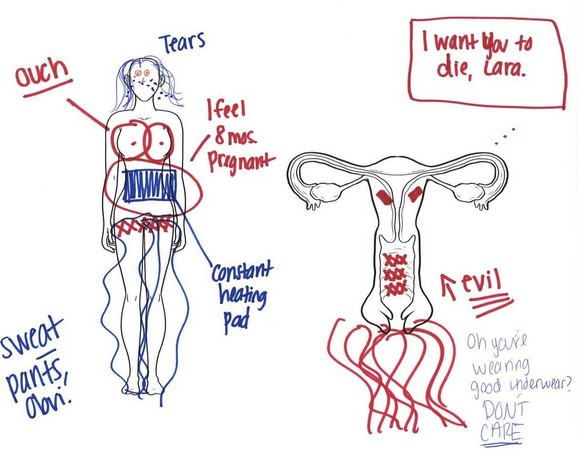 Tears
ouch
I feel
8 mos.
pregnant
constant
heating
pad
sweat
pants,
obv.!
I want you to
die, Lara.
evil
Oh you're
wearing
good underwear?
DON'T
CARE